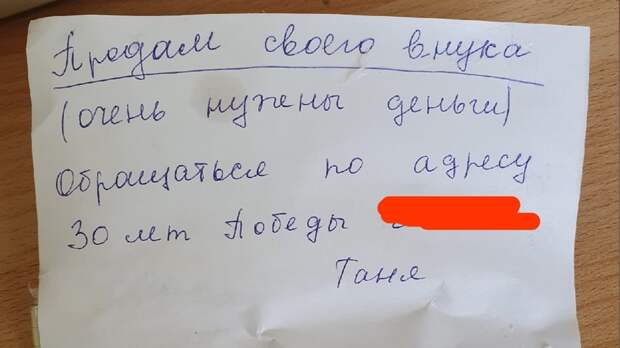 Продам своего внука
(очень нужены деньги)
Обращаться по адресу
30 лет Победы
Таня